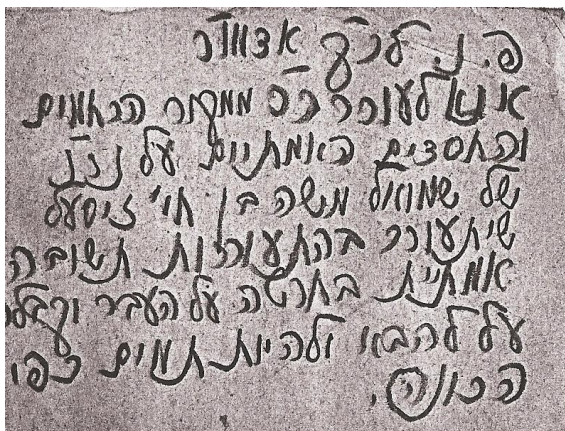 פ. נ. לכ״ק אדמו״ר
אנא לעורר ממקור הרחמים
והחסדים האמתיים על נרנ
של שמואל משה בן חי' זיסעל
שיתעורר בהתעוררות תשובה
אמתית בחרטה על העבר וקבלה
על להבא ולהיות תמים כפי
הכונה.